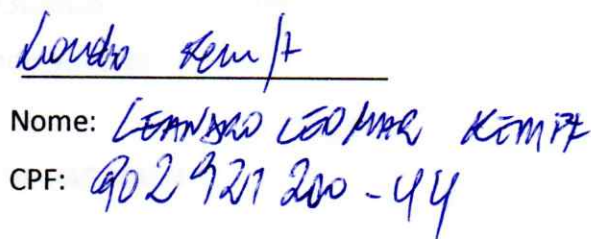 Leandro Kempf
Nome: LEANDRO LEOMAR KEMPF
CPF: 902 921 200-44